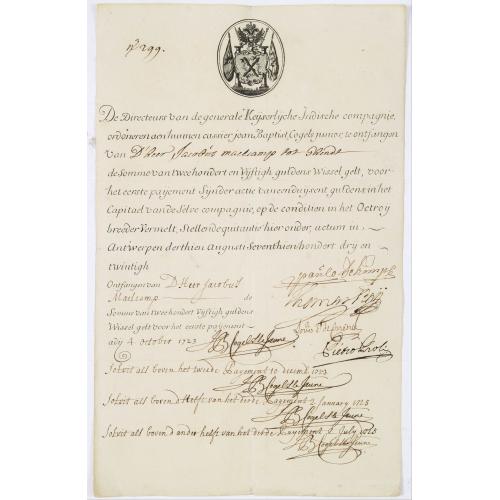 No 299.
De Directeurs van de generale Keyserlycke Indische compagnie,
ordineren aen hunnen cassier jean Baptist, Cogels junior, te ontfangen
van D'heer Jacobus maelcamp tot Ghendt
de Somme van tweehondert en Vyftigh guldens Wissel gelt, voor
het eerste payement Synder actie van een duysent guldens in het
Capitael van de Selve compagnie, op de condition in het Octroy
breeder Vermelt, Stellende quitantie hier onder, actum in
Antwerpen derthien Augusti Seventhien hondert dry en
twintigh
Ontfangen van D Heer Jacobus
Maelcamp de
Somme van tweehondert Vyftigh guldens
Wissel gelt voor het eerste payement
ady 4 october 1723 JB Cogels Le Jeune
Solvit als boven het tweede Payement 10 decemb 1723
JB Cogels Le Jeune
Solvit als boven d'helft van het derde Payement 2 January 1725
JB Cogels Le Jeune
Solvit als boven d'ander helft van het derde Payement 2 July 1725
JB Cogels Le Jeune